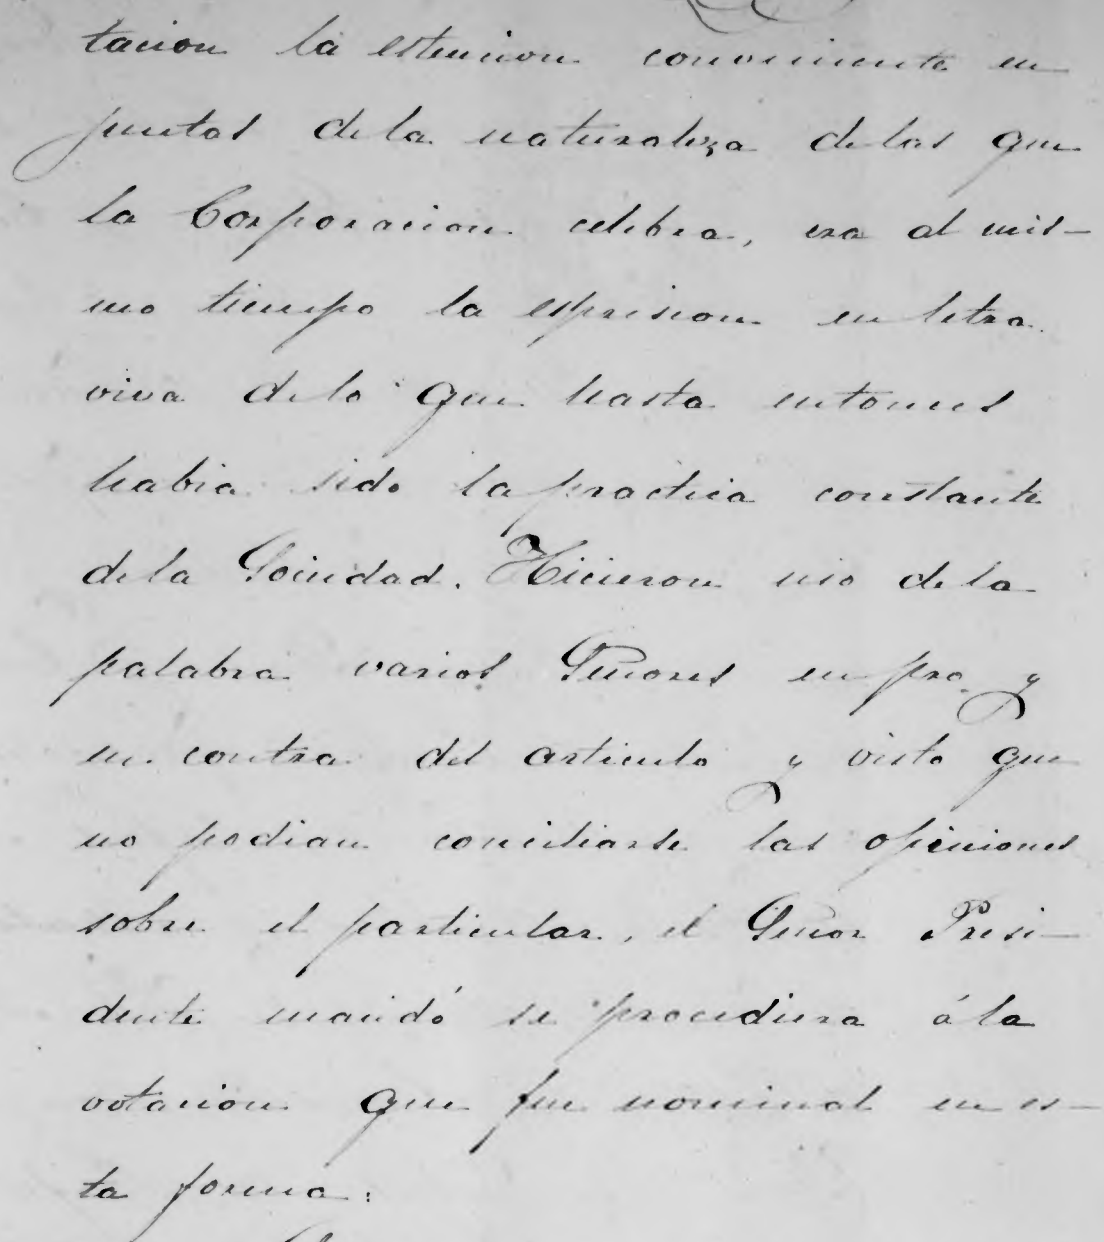 tacion la estencion conveniente en
juntas de la naturaleza de las que
la Corporacion celebra, era al mis-
mo tiempo la espresion en letra
viva de lo que hasta entonces
habia sido la practica constante
de la Sociedad. Hicieron uso de la
palabra varios Señores en pro y
en contra del articulo y visto que
no podian conciliarse las opiniones
sobre el particular, el Señor Presi-
dente mandó se procediera á la
votacion que fue nominal en es-
ta forma: